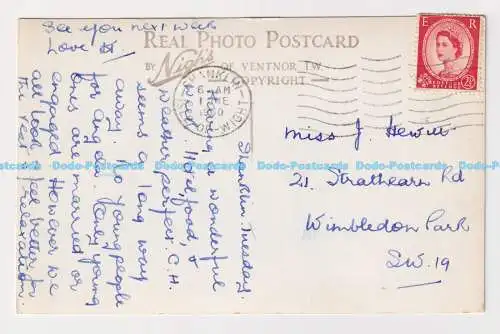 See you next week
Love
REAL PHOTO POSTCARD
BY Nigh's OF VENTNOR I.W.
COPYRIGHT
E R
2½
SHANKLIN
6 - AM
ISLE-OF-WIGHT
Shanklin. Tuesday.
Having a wonderful
week. Hotel, food, &
weather perfect. C.H.
seems a long way
away. No young people
for any d
ones are married or
engaged. However we
all look & feel better for
the rest & relaxation.
Miss J. Hewitt
21. Strathearn Rd
Wimbledon Park
S.W. 19
Dodo-Postcards Dodo-Postcards Dodo-Postcards Dodo-Postcards Dodo-Postcards